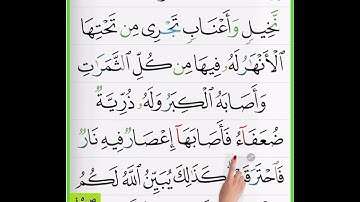 نَّخِيلٍ وَأَعْنَابٍ تَجْرِى مِن تَحْتِهَا
الْأَنْهَارُ لَهُ فِيهَا مِن كُلِّ الثَّمَرَاتِ
وَأَصَابَهُ الْكِبَرُ وَلَهُ ذُرِّيَّةٌ
ضُعَفَاءُ فَأَصَابَهَا إِعْصَارٌ فِيهِ نَارٌ
فَاحْتَرَقَتْ كَذَلِكَ يُبَيِّنُ اللَّهُ لَكُمُ